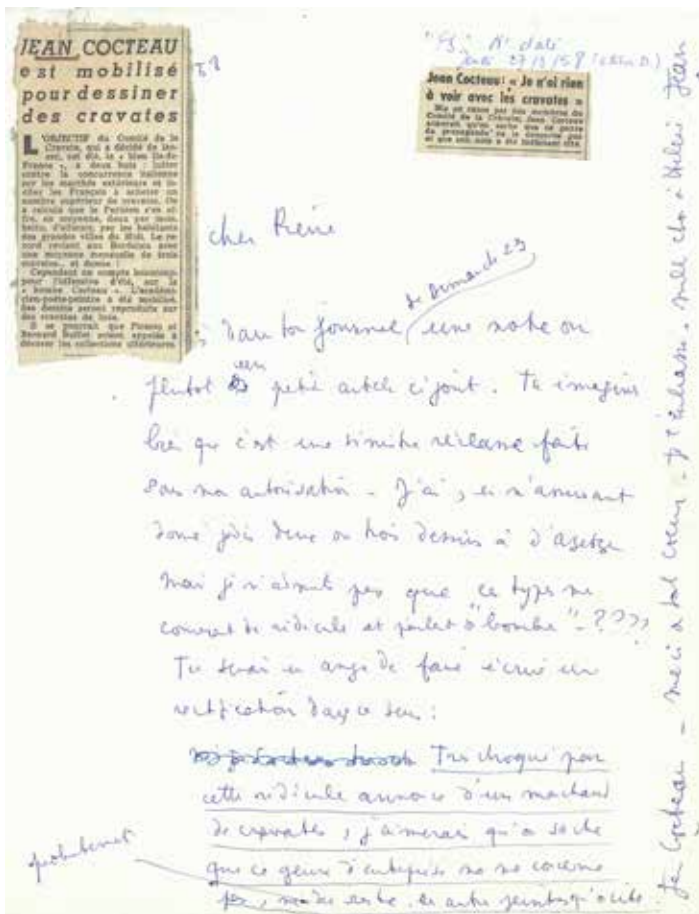 JEAN COCTEAU
est mobilisé
pour dessiner
des cravates
L'OBJECTIF du Comité de la
Cravate, qui a décidé de lan-
cer, cet été, le « bleu Ile-de-
France », a deux buts : lutter
contre la concurrence italienne
sur les marchés extérieurs et in-
citer les Français à acheter un
nombre supérieur de cravates. On
a calculé que le Parisien s'en of-
fre, en moyenne, deux par mois,
battu, d'ailleurs, par les habitants
des grandes villes du Midi. Le re-
cord revient aux Bordelais avec
une moyenne mensuelle de trois
cravates... et demie !
Cependant on compte beaucoup,
pour l'offensive d'été, sur la
« bombe Cocteau ». L'académi-
cien-poète-peintre a été mobilisé,
des dessins seront reproduits sur
des cravates de luxe.
Il se pourrait que Picasso et
Bernard Buffet soient appelés à
décorer les collections ultérieures.
Jean Cocteau : « Je n'ai rien
à voir avec les cravates »
Mis en cause par des membres du
Comité de la Cravate, Jean Cocteau
aimerait qu'on sache que ce genre
de propagande ne le concerne pas
et que son nom a été indûment cité.
cher Pierre
de Dimanche 23
dans ton journal une note ou
plutot un petit article ci joint. Tu imagines
bien que c'est une sinistre réclame faite
sans mon autorisation - J'ai, en m'amusant
donné jadis deux ou trois dessins à
mais je n'admets pas que ce type me
couvre de ridicule et parle de "bombe" - ????
Tu serais un ange de faire écrire une
rectification dans ce sens :
Très choqué par
cette ridicule annonce d'un marchand
de cravates, j'aimerais qu'on sache
que ce genre d'entreprise ne me concerne
pas, les autres peintres qu'on cite.
probablement
Jean Cocteau - merci de tout coeur - Je t'embrasse - mille choses à Hélène Jean